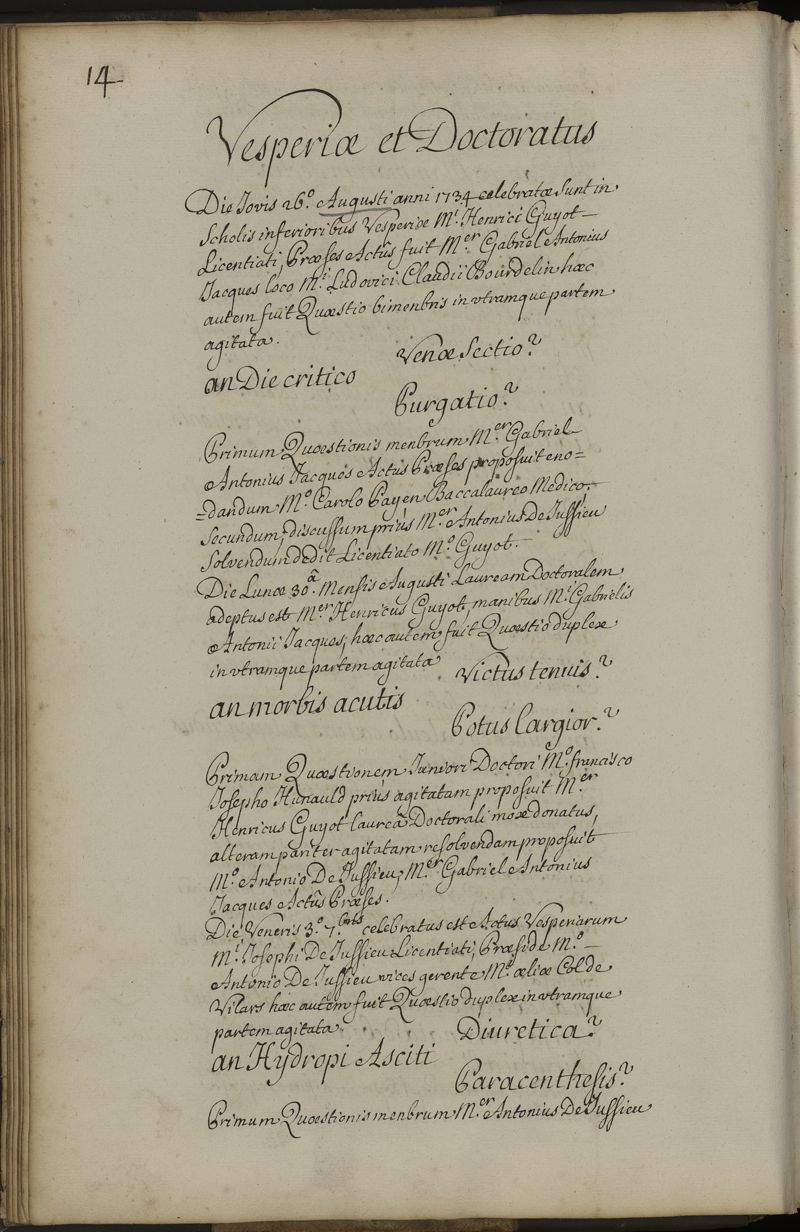 14
Vesperiæ et Doctoratus
Die Jovis 26.º Augusti anni 1734 celebratæ sunt in
Scholis inferioribus Vesperiæ M.i Henrici Guyot
Licentiati, Præses Actûs fuit M.er Gabriel Antonius
Jacques loco M.i Ludovici Claudii Bourdelin hæc
autem fuit Quæstio bimenbris in utramque partem
agitata.
Venæ Sectio?
an Die critico
Purgatio?
Primum Quæstionis menbrum M.er Gabriel
Antonius Jacques Actûs Præses proposuit eno=
=dandum M.º Carolo Payen Baccalaureo Medico,
Secundum, discussum priùs M.er Antonius De Jussieu
Solvendum dedit Licentiato M.º Guyot.
Die Lunæ 30.â Mensis Augusti Lauream Doctoralem
adeptus est M.er Henricus Guyot, manibus M.i Gabrielis
Antonii Jacques, hæc autem fuit Quæstio duplex
in utramque partem agitata
Victus tenuis?
an morbis acutis
Potus largior?
Primam Quæstionem Juniori Doctori M.º francisco
Josepho Hunauld priùs agitatam proposuit M.er
Henricus Guyot laureâ Doctorali mox donatus,
alteram pariter agitatam resolvendam proposuit
M.º Antonio De Jussieu, M.er Gabriel Antonius
Jacques Actûs Præses.
Die Veneris 3.º 7.bris celebratus est Actus Vesperiarum
M.i Josephi De Jussieu Licentiati, Præside M.º
Antonio De Jussieu vices gerente M.i æliæ Col de
Vilars hæc autem fuit Quæstio duplex in utramque
partem agitata.
Diuretica?
an Hydropi Asciti
Paracenthesis?
Primum Quæstionis menbrum M.er Antonius De Jussieu